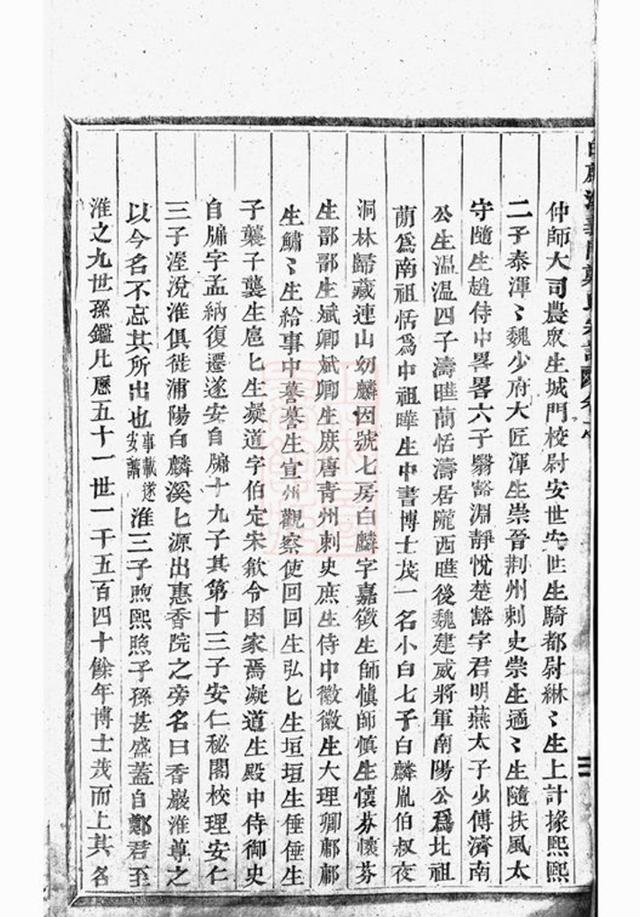 仲師大司農眾生城門校尉安世安世生騎都尉綝〻生上計掾熙熙
二子泰渾〻魏少府大匠渾生崇晉荆州刺史崇生遹〻生隨扶風太
守隨生趙侍中畧畧六子翳豁淵靜悅楚豁字君明燕太子少傅濟南
公生温温四子濤曄蕑恬濤居隴西曄後魏建威將軍南陽公爲北祖
蕑爲南祖恬爲中祖曄生中書博士茂一名小白七子白麟胤伯叔夜
洞林歸藏連山幼麟因號七房白麟字嘉徵生師慎師慎生懷芬懷芬
生鄑鄑生斌卿斌卿生庻唐青州刺史庶生侍中徽徽生大理卿鄘鄘
生鱐〻生給事中暮暮生宣州觀察使回回生弘匕生垣垣生倕倕生
子蘷子蘷生扈匕生凝道字伯定宋歙令因家焉凝道生殿中侍御史
自牗字孟納復遷遂安自牗十九子其第十三子安仁秘閣校理安仁
三子渥涗淮俱徙浦陽白麟溪匕源出惠香院之旁名曰香巖淮尊之
以今名不忘其所出也事載遂安譜淮三子煦熙照子孫甚盛蓋自鄭君至
淮之九世孫鑑凡歷五十一世一千五百四十餘年博士茂而上其名